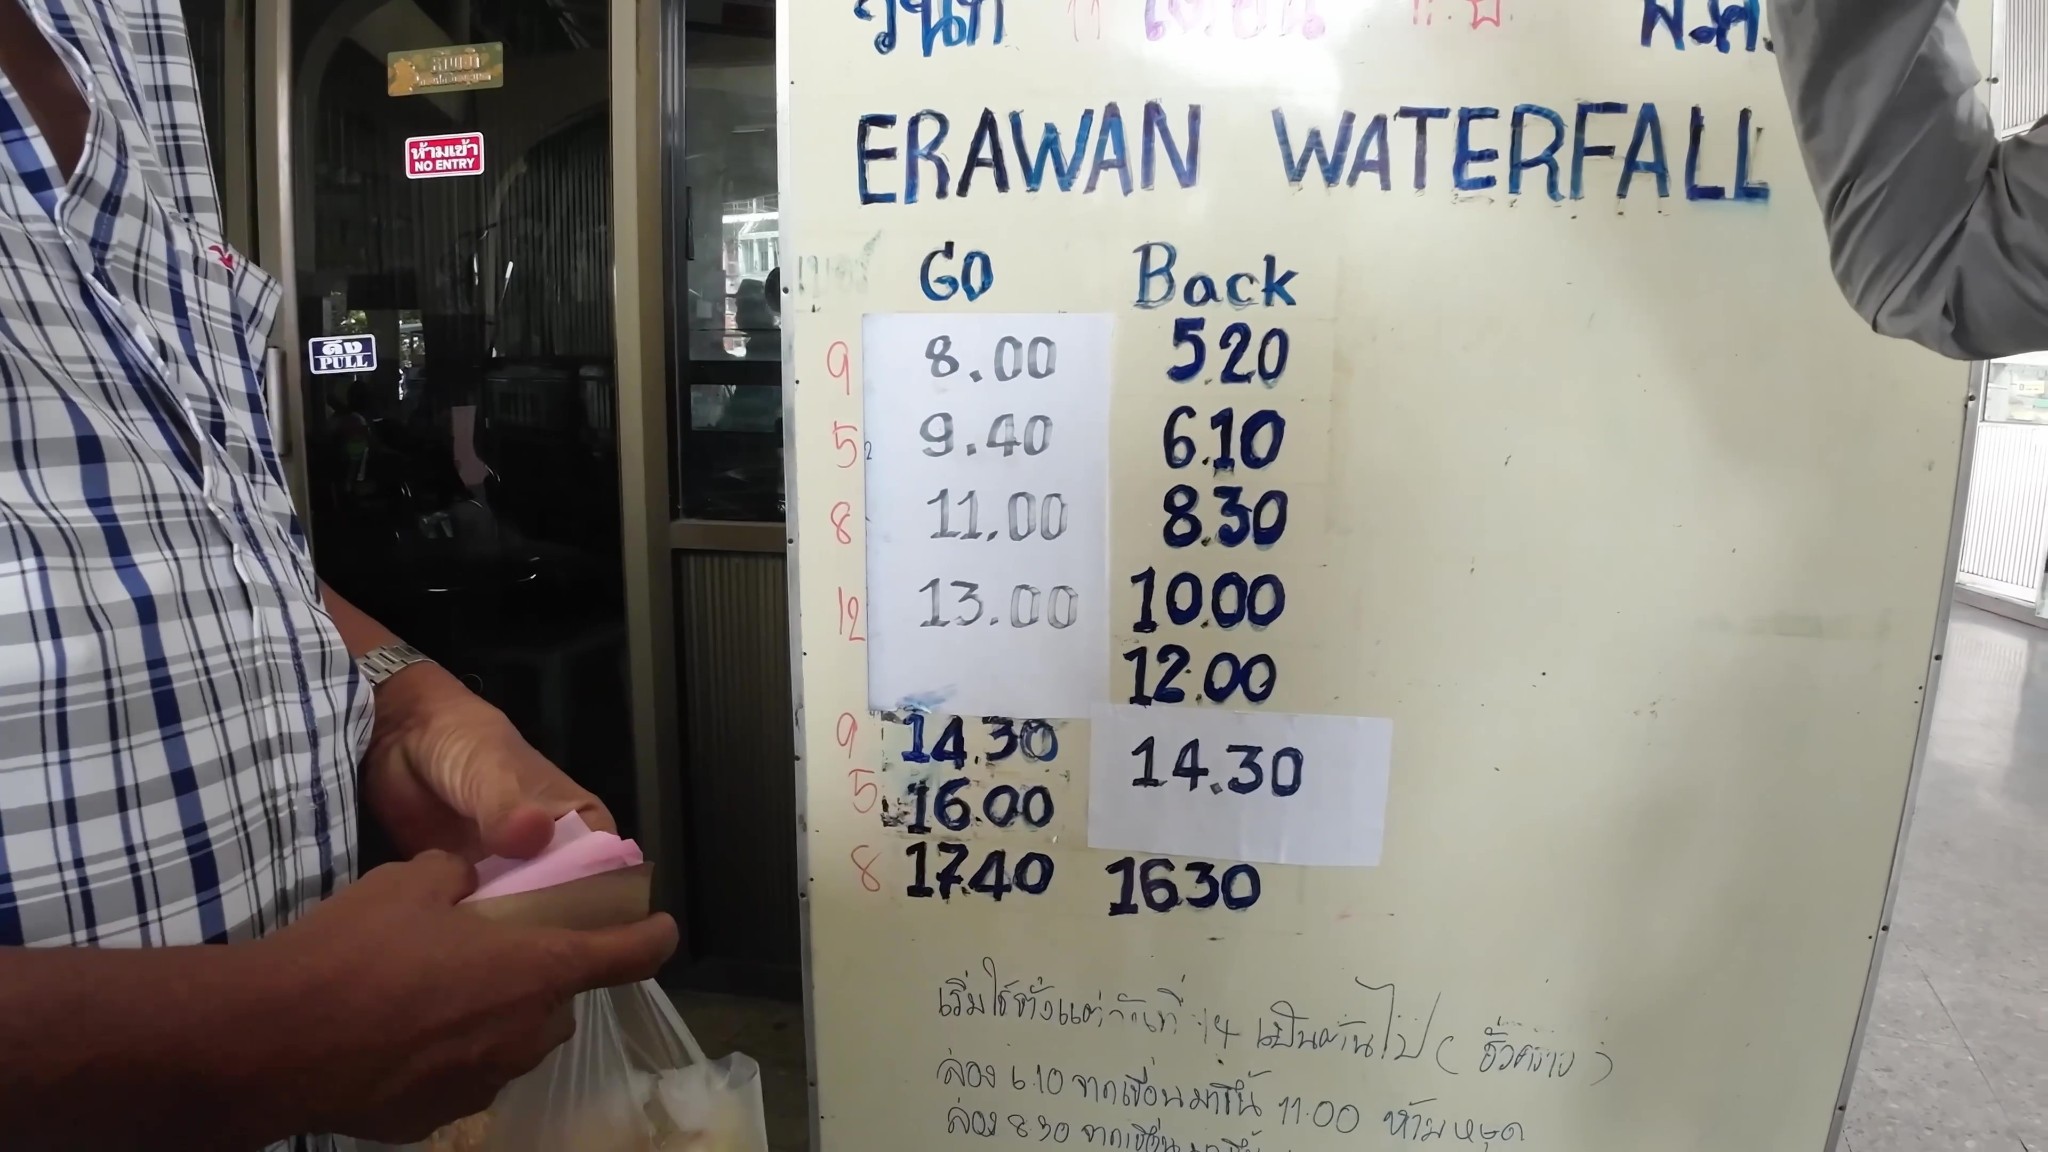 วันที่ 11 เดือน 11 ปี พ.ศ.
ERAWAN WATERFALL
GO Back
9 8.00 5.20
5 9.40 6.10
8 11.00 8.30
12 13.00 10.00
12.00
9 14.30 14.30
5 16.00
8 17.40 16.30
เริ่มใช้ตั้งแต่วันที่ 14 เป็นต้นไป (ชั่วคราว)
ล่อง 6.10 จากเขื่อนมาขึ้น 11.00 ห้ามหยุด
ล่อง 8.30 จากเขื่อนมาขึ้น
ห้ามเข้า
NO ENTRY
ดึง
PULL